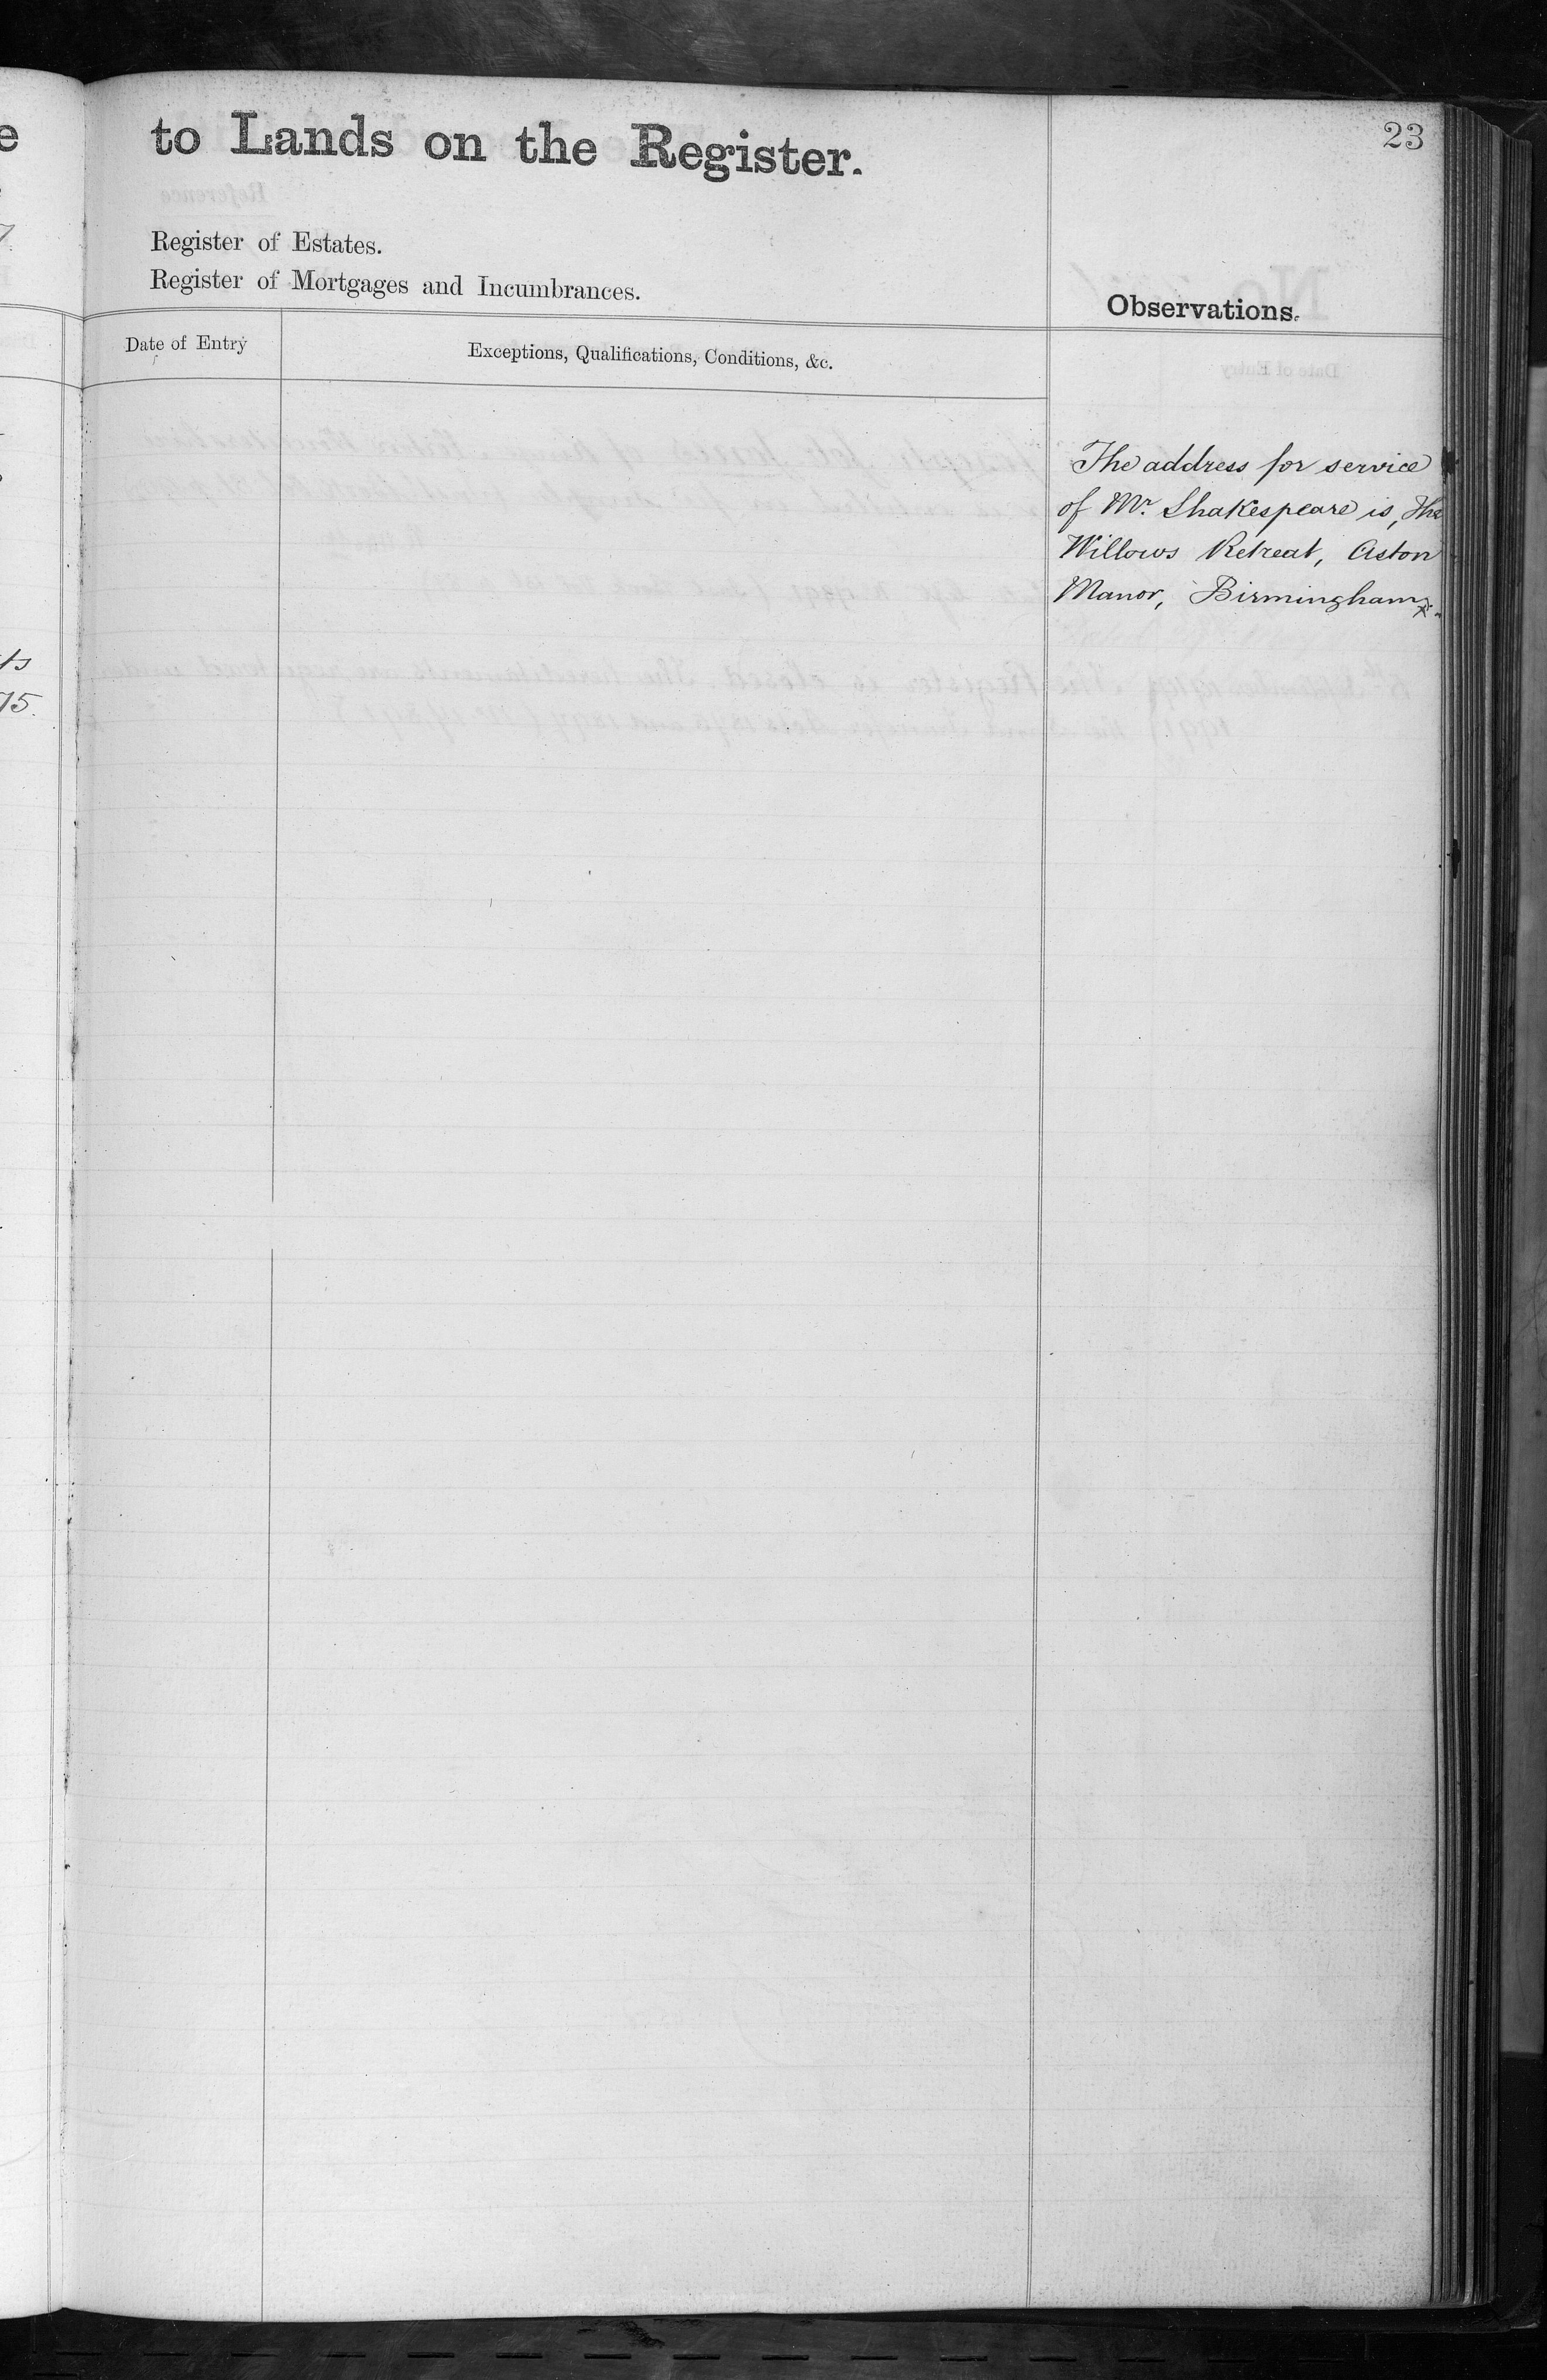 to Lands on the Register.
23
Register of Estates.
Register of Mortgages and Incumbrances.
Observations.
Date of Entry
Exceptions, Qualifications, Conditions, &c.
The address for service
of Mr. Shakespeare is, The
Willows Retreat, Aston
Manor, Birmingham
75.